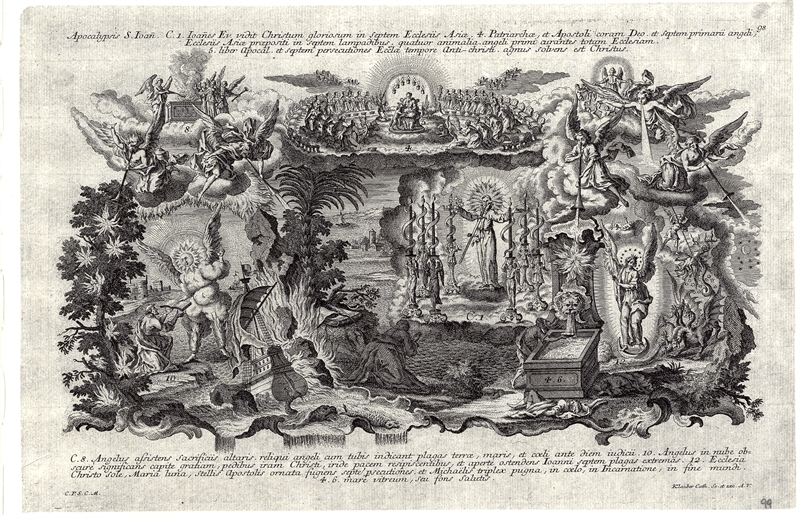 98
Apocalypsis S. Ioañ. C. 1. Ioañes Ev. vidit Christum gloriosum in septem Ecclesiis Asiæ. 4. Patriarchæ, et Apostoli coram Deo. et septem primarii angeli,
Ecclesiis Asiæ præpositi in septem lampadibus, quatuor animalia angeli primi curantes totam Ecclesiam.
5. liber Apocal. et septem persecutiones Ecclæ tempore Anti-christi. agnus solvens est Christus.
8.
4.
C. 1.
10.
4. 6.
C. 8. Angelus assistens sacrificiis altaris. reliqui angeli cum tubis indicant plagas terræ, maris, et cœli ante diem iudicii. 10. Angelus in nube ob-
scure significans capite gratiam, pedibus iram Christi, iride pacem resipiscentibus, et aperte ostendens Ioanni septem plagas extremas. 12. Ecclesia
Christo sole, Maria luna, stellis Apostolis ornata fugiens septē pſecutiones. et Michaelis triplex pugna, in cœlo, in Incarnatione, in fine mundi.
4. 6. mare vitreum, seu fons salutis.
C. P. S. C. M.
Klauber Cath. Sc. et exc. A. V.
99